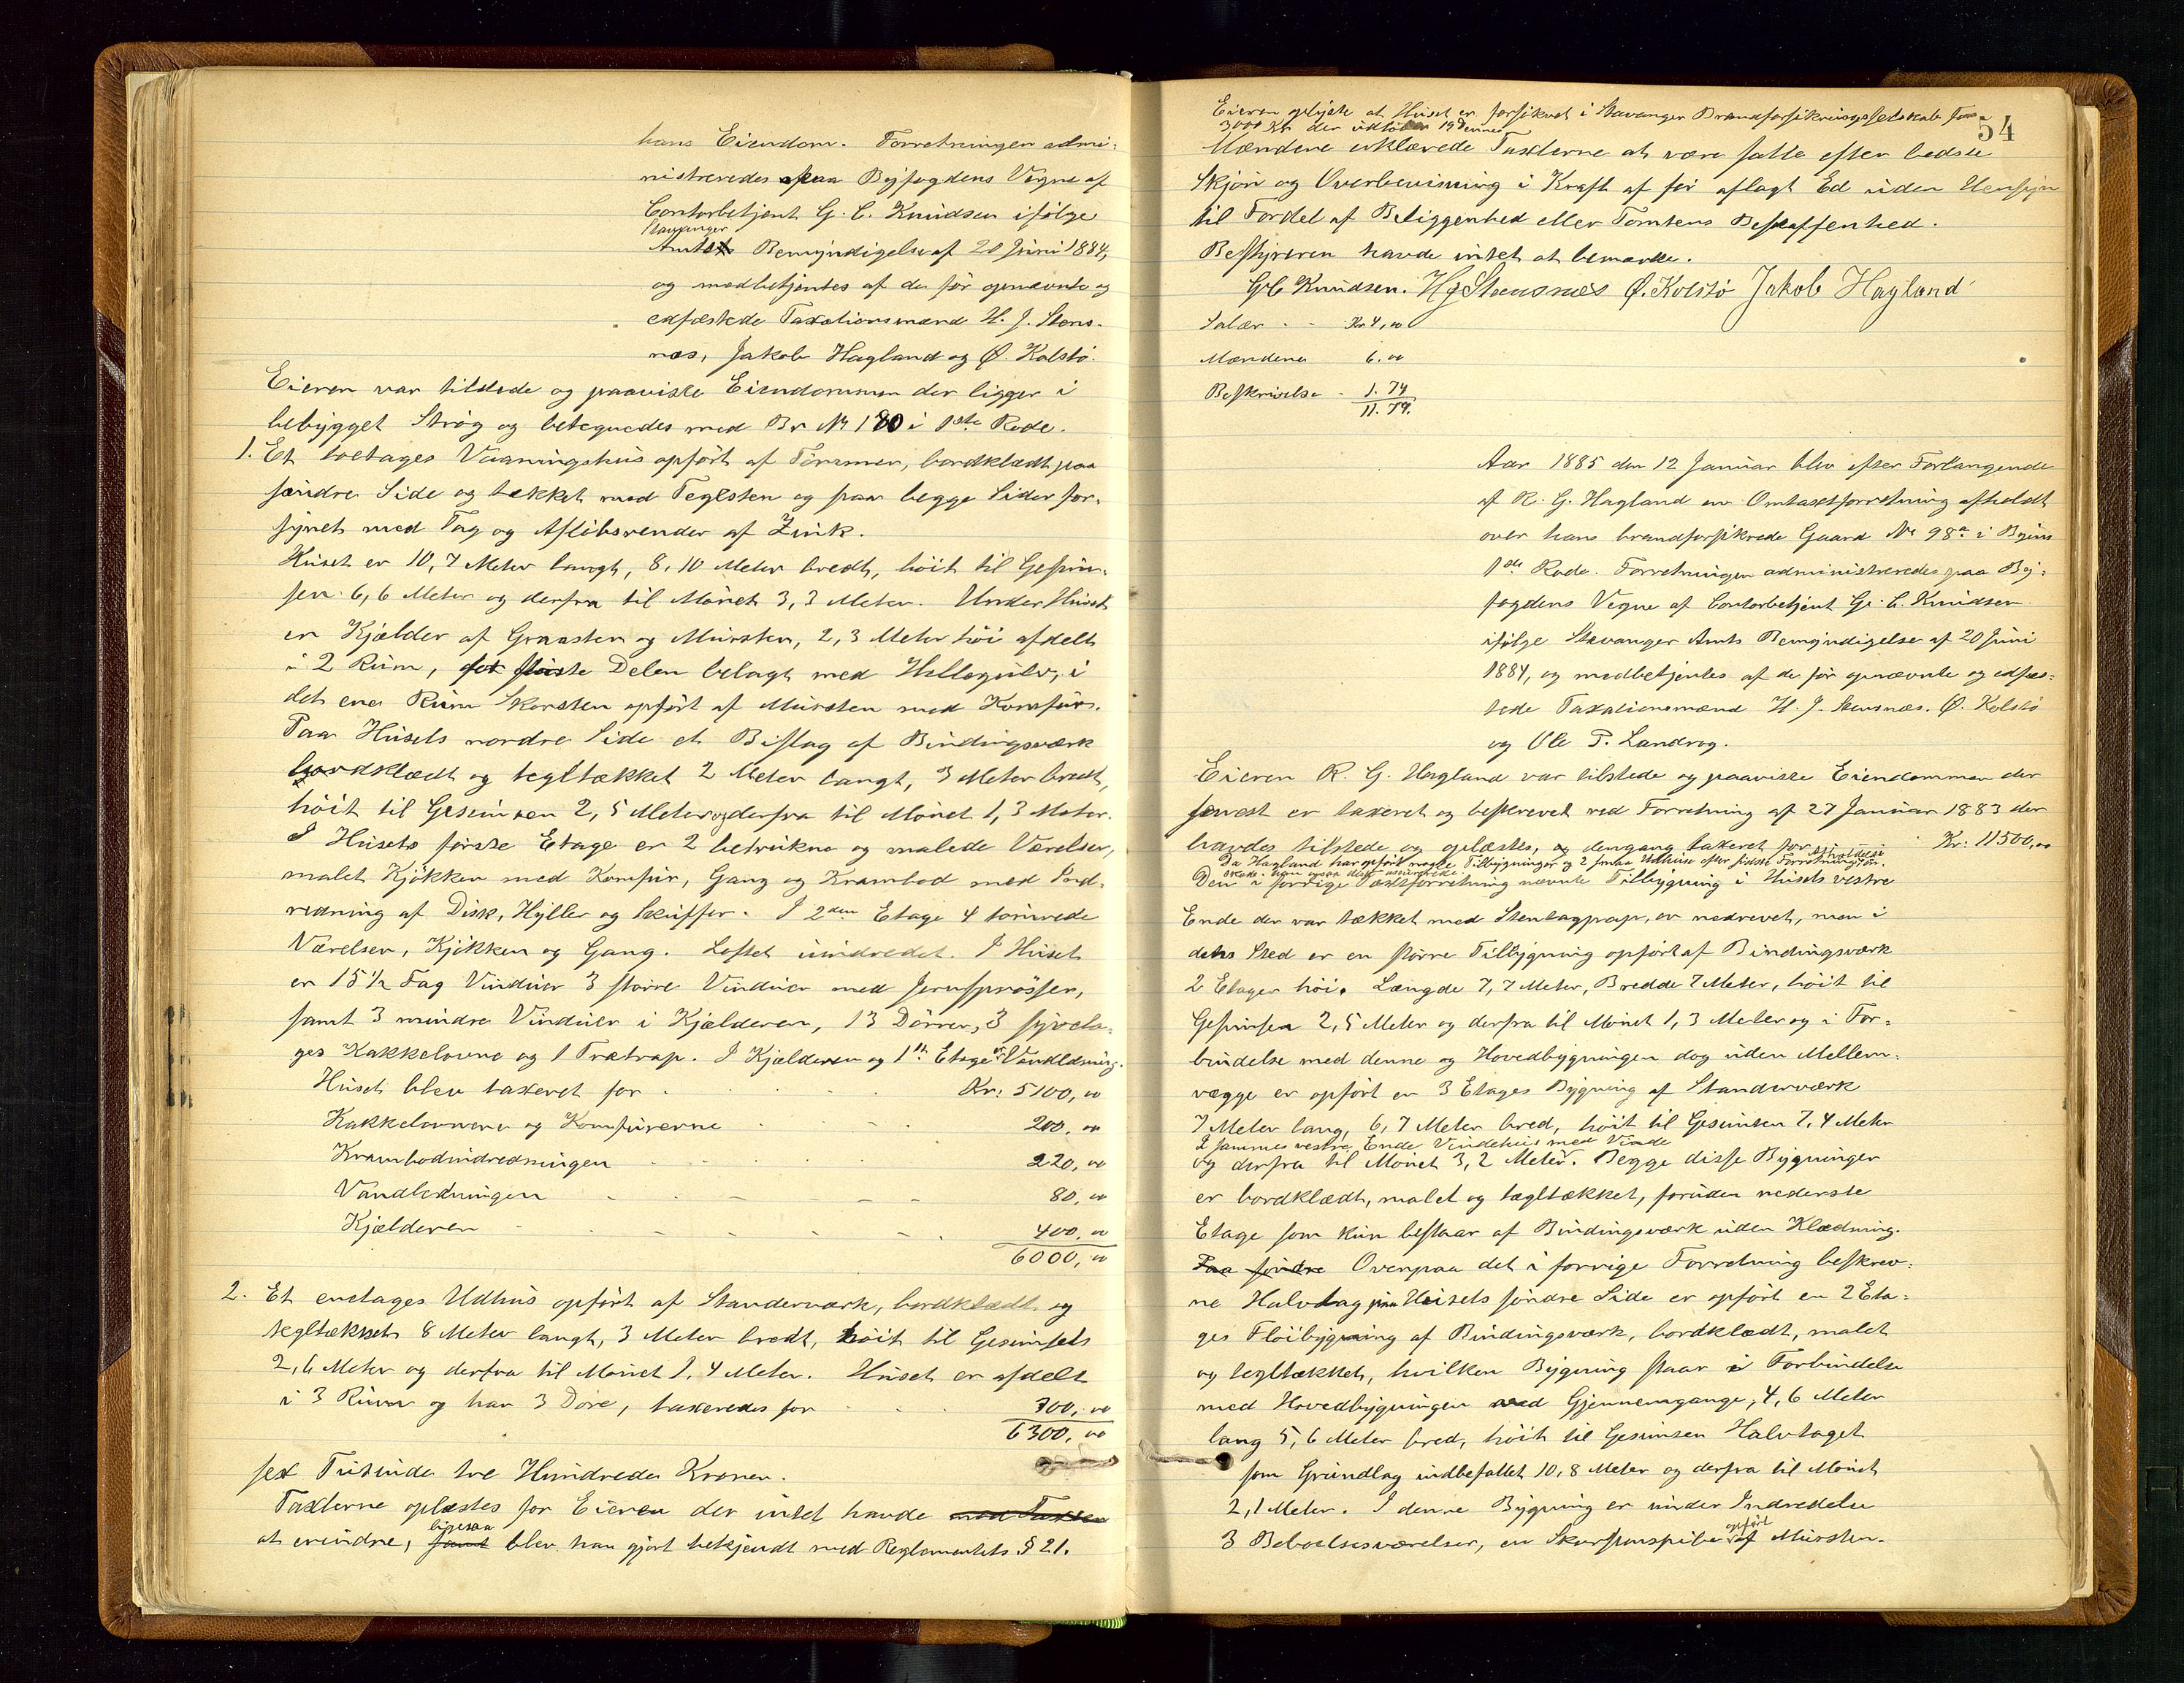 hans Eiendom. Forretningen admi-
nistreredes paa Byfogdens Vegne af
Contorbetjent G. C. Knudsen ifølge
Stavanger
Amts Bemyndigelse af 20 Juni 1884,
og medbetjentes af de før opnævnte og
edfæstede Taxationsmænd H. J. Stens-
næs, Jakob Hagland og Ø. Kolstø.
Eieren var tilstede og paaviste Eiendommen der ligger i
bebygget Strøg og betegnedes med Br. No 180 i 1ste Rode.
1. Et toetages Vaaningshus opført af Tømmer, bordklædt paa
søndre Side og tækket med Teglsten og paa begge Sider for-
synet med Tag og Afløbsrender af Zink.
Huset er 10,7 Meter langt, 8,10 Meter bredt, høit til Gesim-
sen 6,6 Meter og derfra til Mønet 3,3 Meter. Under Huset
er Kjælder af Graasten og Mursten, 2,3 Meter høi afdelt
i 2 Rum, for største Delen belagt med Hellegulv, i
det ene Rum Skorsten opført af Mursten med Komfur.
Paa Husets nordre Side et Bislag af Bindingsværk
bordklædt og tegltækket 2 Meter langt, 3 Meter bredt,
høit til Gesimsen 2,5 Meter og derfra til Mønet 1,3 Meter.
I Husets første Etage er 2 betrukne og malede Værelser,
malet Kjøkken med Komfur, Gang og Krambod med Ind-
redning af Disk, Hyller og Skuffer. I 2den Etage 4 tømrede
Værelser, Kjøkken og Gang. Loftet uindredet. I Huset
er 15 1/2 Fag Vinduer 3 større Vinduer med Jernsprosser,
samt 3 mindre Vinduer i Kjælderen, 13 Dörrer, 3 toeta-
ges Kakkelovne og 1 Trætrap. I Kjælderen og 1ste Etage er Vandledning.
Huset blev taxeret for Kr: 5100,00
Kakkelovnene og Komfurerne 200,00
Krambodindredningen 220,00
Vandledningen 80,00
Kjælderen 400,00
6000,00
2. Et enetages Udhus opført af Standerværk, bordklædt og
tegltækket 8 Meter langt, 3 Meter bredt, høit til Gesimsets
2,6 Meter og derfra til Mønet 1,4 Meter. Huset er afdelt
i 3 Rum og har 3 Døre, taxeredes for 300,00
6300,00
sex Tusinde tre Hundrede Kroner.
Taxterne oplæstes for Eieren der intet havde med Taxten
ligesaa
at erindre, samt blev han gjort bekjendt med Reglementets § 21.
Eieren oplyste at Huset er forsikret i Stavanger Brandforsikringsselskab for
3000 Kr der udløber 19 dennes
54
Mændene erklærede Taxterne at være satte efter bedste
Skjøn og Overbevisning i Kraft af før aflagt Ed uden Hensyn
til Fordel af Beliggenhed eller Tomtens Beskaffenhed.
Bestyreren havde intet at bemærke.
G C Knudsen. H J Stensnæs Ø. Kolstø Jakob Hagland
Salær Kr 4,00
Mændene 6.00
Beskrivelse 1.74
11.74.
Aar 1885 den 12 Januar blev efter Forlangende
af R. G. Hagland en Omtaxtforretning afholdt
over hans brandforsikrede Gaard No 98a i Byens
1ste Rode. Forretningen administreredes paa By-
fogdens Vegne af Contorbetjent G. C. Knudsen
ifølge Stavanger Amts Bemyndigelse af 20 Juni
1884, og medbetjentes af de før opnævnte og edfæs-
tede Taxationsmænd H. J. Stensnæs, Ø. Kolstø
og Ole P. Landrog.
Eieren R. G. Hagland var tilstede og paaviste Eiendommen der
senest er taxeret og beskrevet ved Forretning af 27 Januar 1883 der
havdes tilstede og oplæstes, og dengang taxeret for Kr: 11500,00
Da Hagland har opført nogle Tilbygninger og 2 smaa Udhuse efter sidste Forretning
Den i forrige Taxtforretning nævnte Tilbygning i Husets vestre
Ende der var tækket med Stentagpap, er nedrevet, men i
dets Sted er en større Tilbygning opført af Bindingsværk
2 Etager høi. Længde 7,7 Meter, Bredde 7 Meter, høit til
Gesimsen 2,5 Meter og derfra til Mønet 1,3 Meter og i For-
bindelse med denne og Hovedbygningen dog uden Mellem-
vægge er opført en 3 Etages Bygning af Standerværk
7 Meter lang, 6,7 Meter bred, høit til Gesimsen 7,4 Meter
I sammes vestre Ende Vindehus med Vinde
og derfra til Mønet 3,2 Meter. Begge disse Bygninger
er bordklædt, malet og tegltækket, foruden nederste
Etage som kun bestaar af Bindingsværk uden Klædning.
Paa søndre Ovenpaa det i forrige Forretning beskrev-
ne Halvtag paa Husets søndre Side er opført en 2 Eta-
ges Fløibygning af Bindingsværk, bordklædt, malet
og tegltækket, hvilken Bygning staar i Forbindelse
med Hovedbygningen ved Gjennemgange, 4,6 Meter
lang 5,6 Meter bred, høit til Gesimsen Halvtaget
som Grundlag indbefattet 10,8 Meter og derfra til Mønet
2,1 Meter. I denne Bygning er under Indredelse
opført
3 Beboelsesværelser, en Skorstenspibe af Mursten.